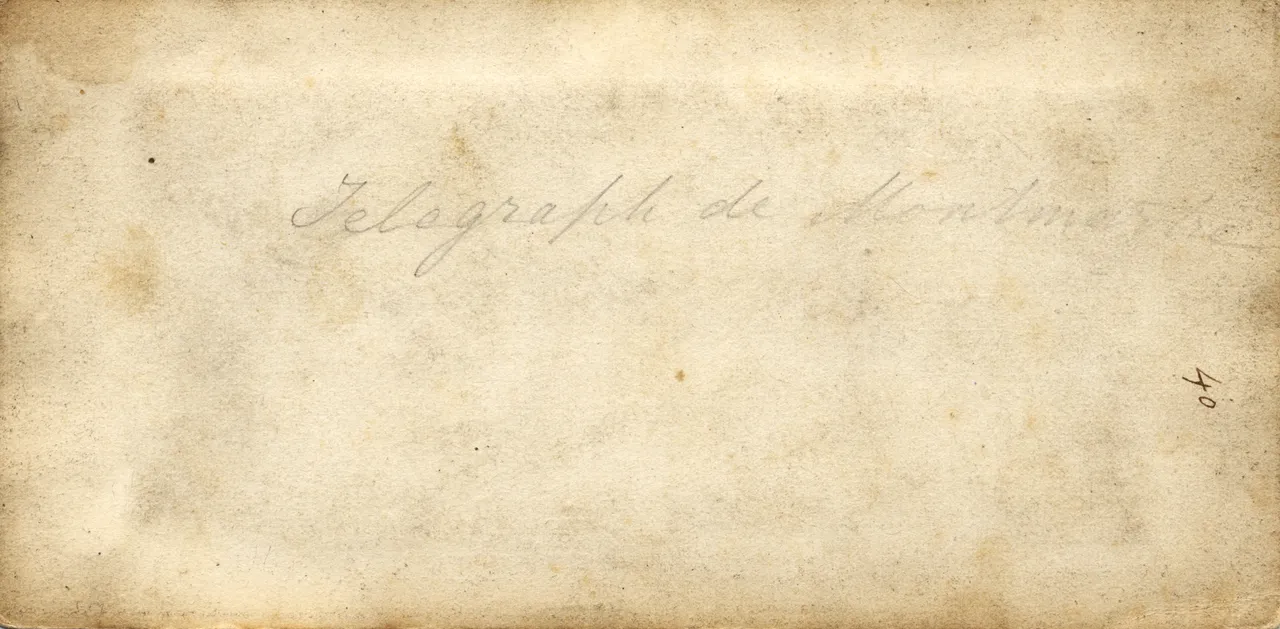 Telegraph de Montmartre
40